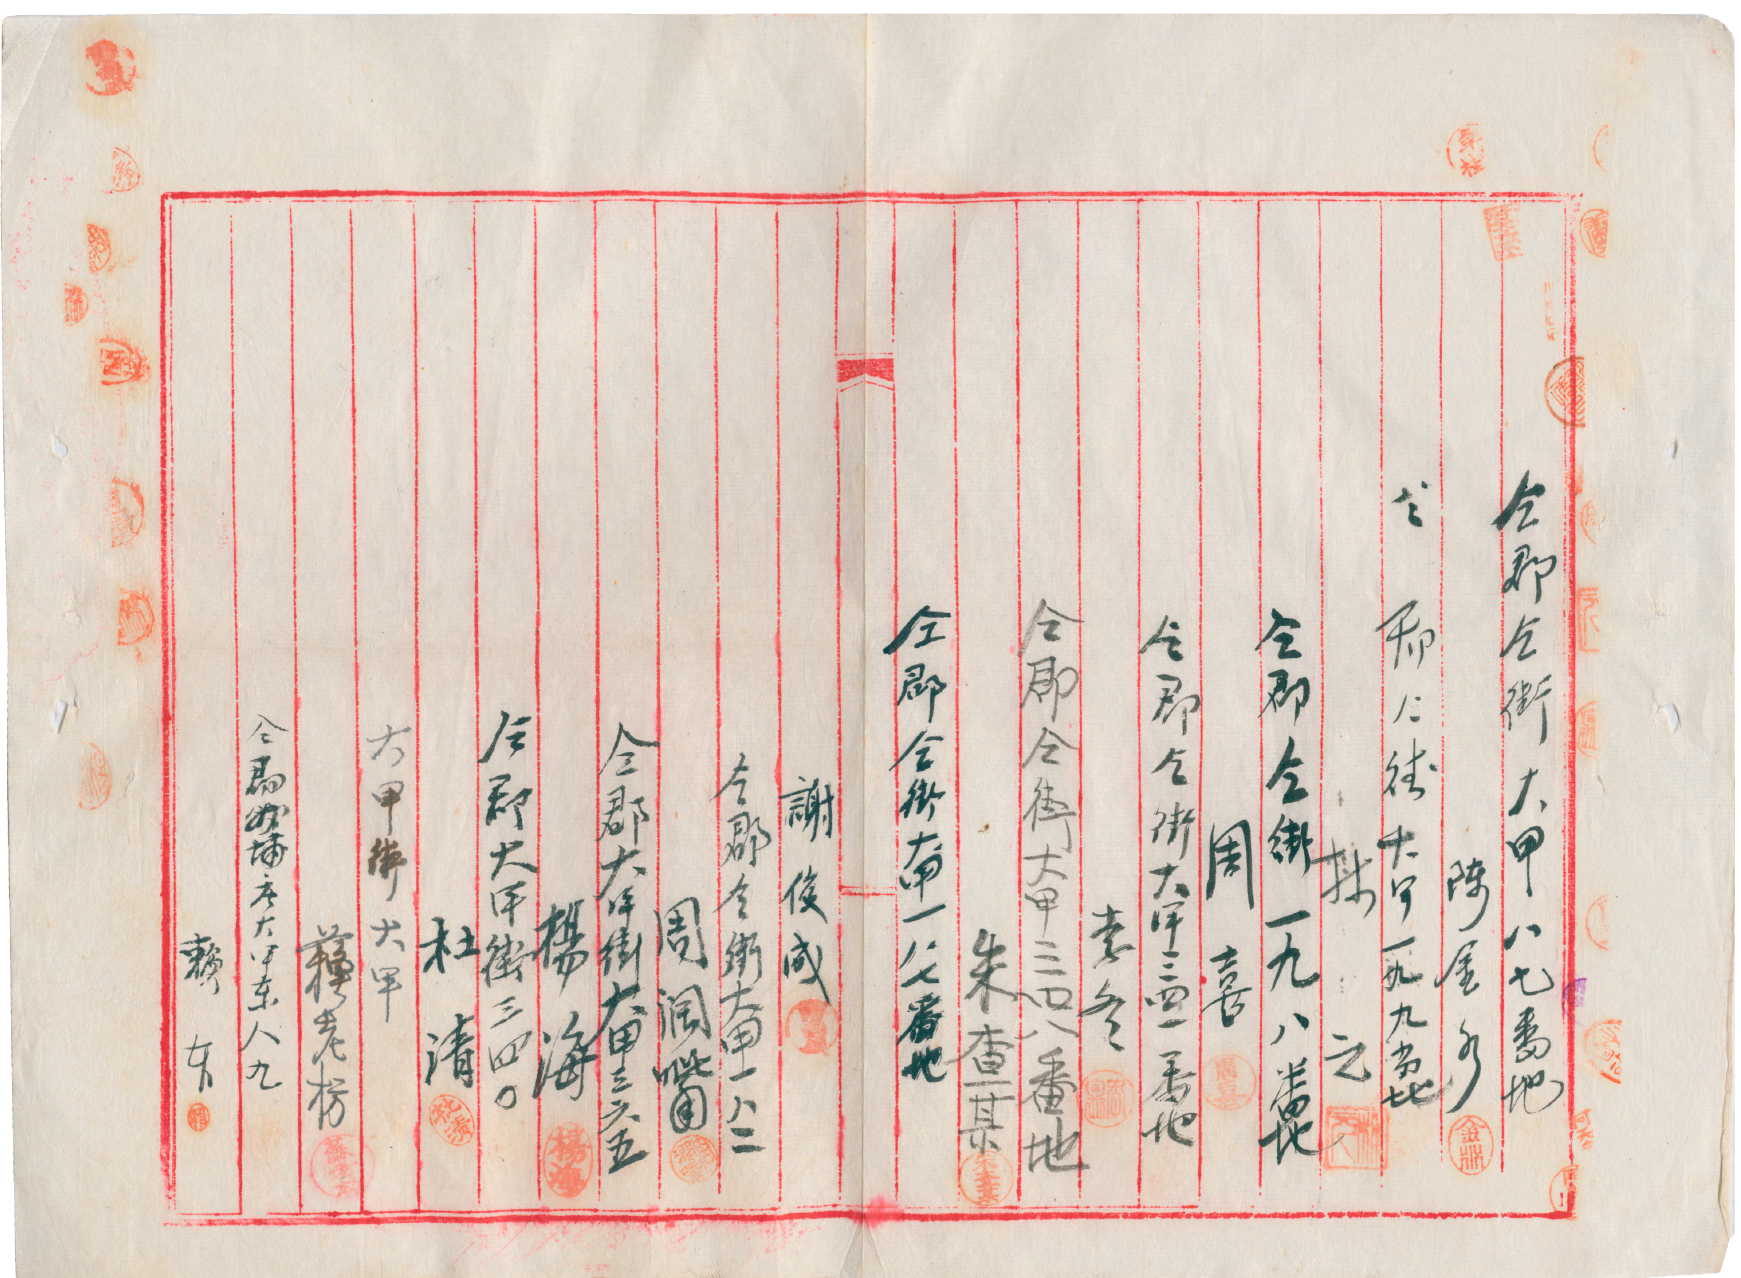 仝郡仝街大甲八七番地
陳金水
仝郡仝街大甲一九九番地
林元
仝郡仝街一九八番地
周喜
仝郡仝街大甲三四一番地
李冬
仝郡仝街大甲三四八番地
朱查某
仝郡仝街大甲一八七番地
謝俊成
仝郡仝街大甲一八二
周潤嘴
仝郡大甲街大甲三六五
楊海
仝郡大甲街三四〇
杜清
大甲街大甲
蘇老枋
仝郡外埔庄大甲東八九
賴有